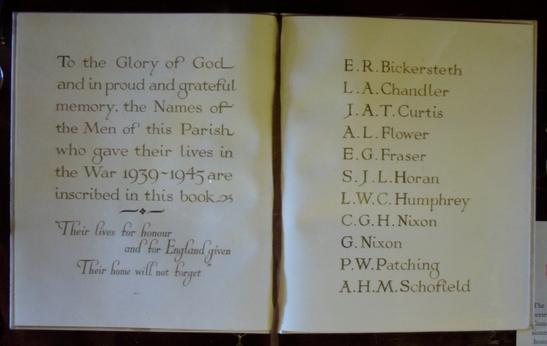 To the Glory of God
and in proud and grateful
memory, the Names of
the Men of this Parish
who gave their lives in
the War 1939~1945 are
inscribed in this book
"Their lives for honour
and for England given
Their home will not forget"
E.R.Bickersteth
L.A.Chandler
J.A.T.Curtis
A.L.Flower
E.G.Fraser
S.J.L.Horan
L.W.C.Humphrey
C.G.H.Nixon
G.Nixon
P.W.Patching
A.H.M.Schofield
The